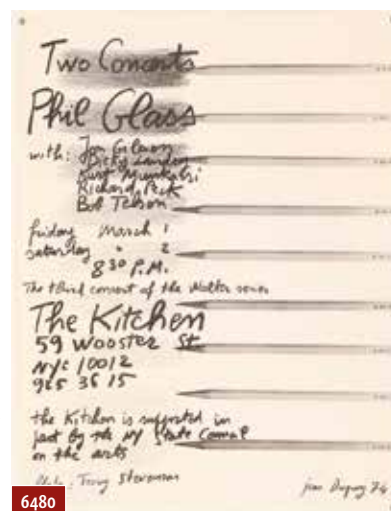 Two Concerts
Phil Glass
with: Jon Gibson
Dicky Landry
Kurt Munkacsi
Richard Peck
Bob Telson
friday March 1
saturday " 2
8 30 P.M.
The third concert of the series
The Kitchen
59 Wooster St
NYC 10012
925 36 15
the Kitchen is supported in
part by the NY State Council
on the arts
Stevenson
jean Dupuy 74
6480